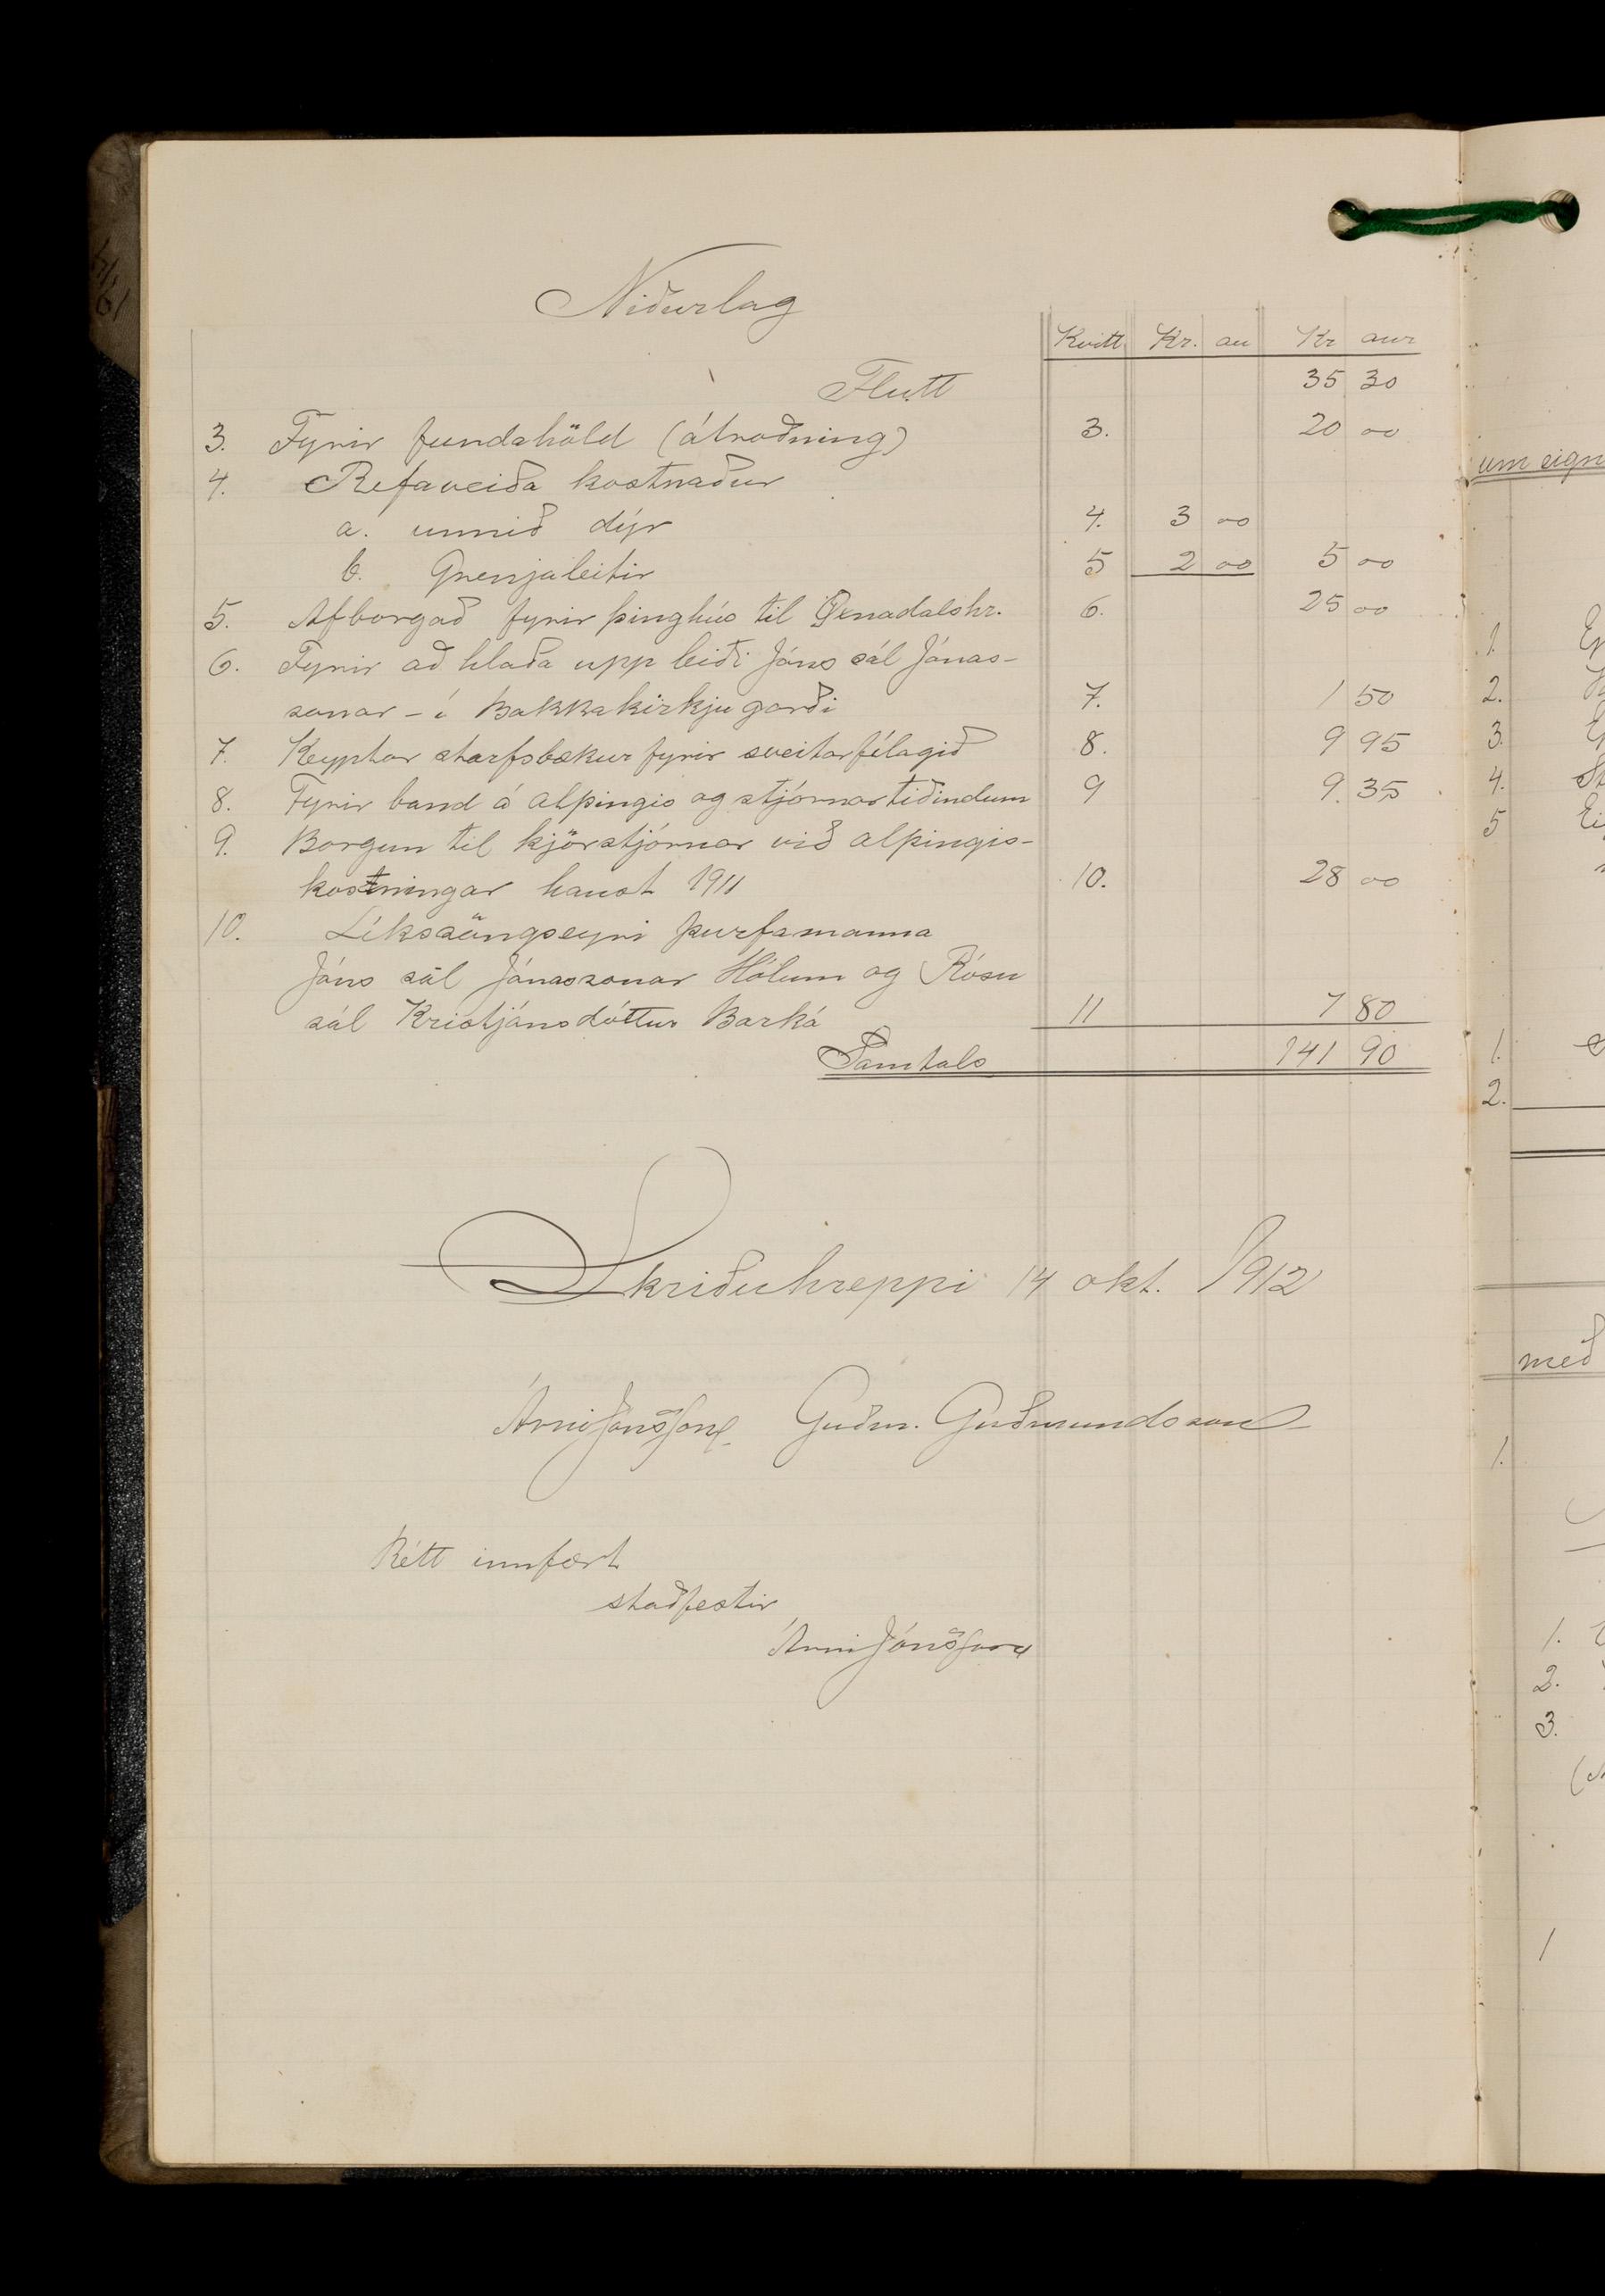 Niðurlag
Kvitt Kr. au Kr aur
Flutt 35 30
3. Fyrir fundahöld (átroðning) 3. 20 00
4. Refaveiða kostnaður
a. unnið dýr 4. 3 00
b. Grenjaleitir 5 2 00 5 00
5. Afborgað fyrir þinghús til Öxnadalshr. 6. 25 00
6. Fyrir að hlaða upp leiði Jóns sál Jónas-
sonar - í Bakkakirkjugarði 7. 1 50
7. Keyptar starfsbækur fyrir sveitarfélagið 8. 9 95
8. Fyrir band á alþingis og stjórnartíðindum 9 9. 35
9. Borgun til kjörstjórnar við alþingis-
kostningar haust 1911 10. 28 00
10. Líksöngseyri þurfamanna
Jóns sál Jónassonar Hólum og Rósu
sál Kristjánsdóttur Barká 11 7 80
Samtals 141 90
Skriðuhreppi 14 okt. 1912
Árni Jónsson Guðm. Guðmundsson
Rétt innfært
staðfestir
Árni Jónsson
um eign
1.
2.
3.
4.
5
1.
2.
með
1.
1.
2.
3.
1